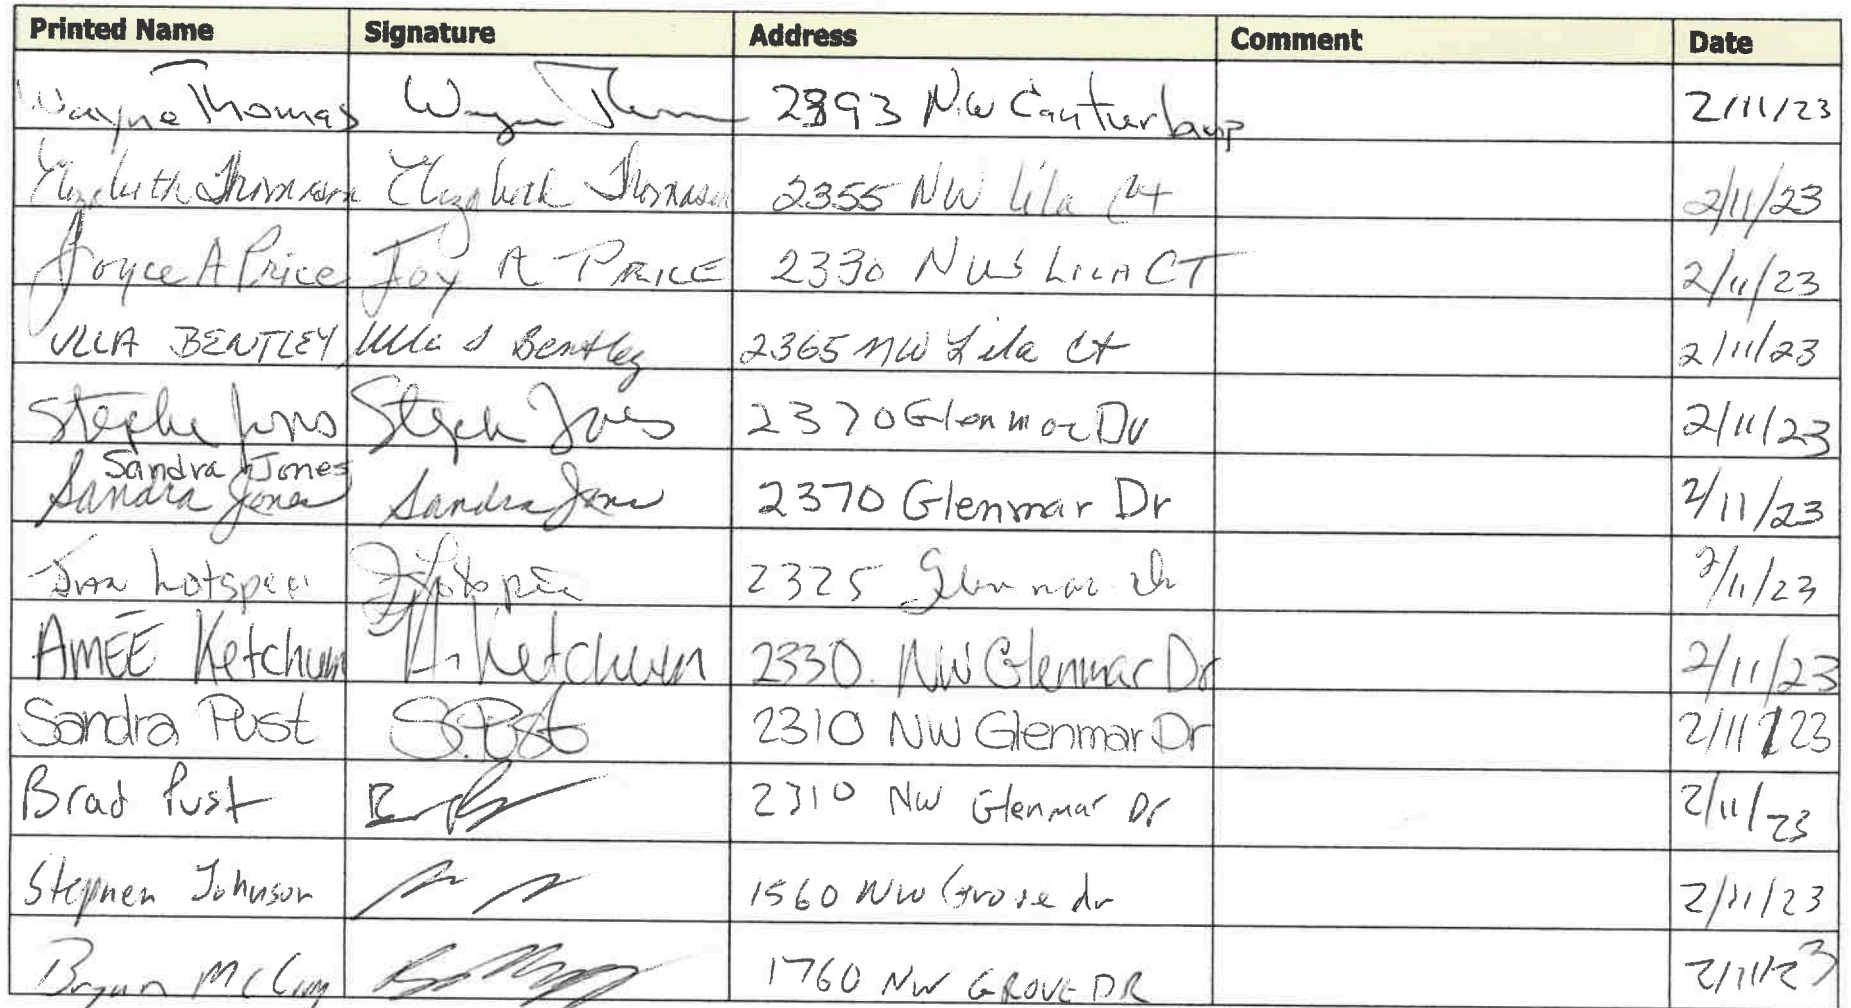 Printed Name Signature Address Comment Date
Wayne Thomas Wayne Thomas 2393 NW Canterbury 2/11/23
Elizabeth Thomason Elizabeth Thomason 2355 NW Lila Ct 2/11/23
Joyce A Price Joy A PRICE 2330 NW LILA CT 2/11/23
ULLA BENTLEY Ulla S Bentley 2365 NW Lila Ct 2/11/23
Jones 2370 Glenmar Dr 2/11/23
Sandra Jones
Sandra Jones Sandra Jones 2370 Glenmar Dr 2/11/23
2325 Glenmar 2/11/23
AMEE Ketchum A. Ketchum 2330 NW Glenmar Dr 2/11/23
Sandra Pust S. Pust 2310 NW Glenmar Dr 2/11/23
Brad Pust 2310 NW Glenmar Dr 2/11/23
Stephen Johnson 1560 NW Grove dr 2/11/23
Bryan 1760 NW GROVE DR 2/11/23